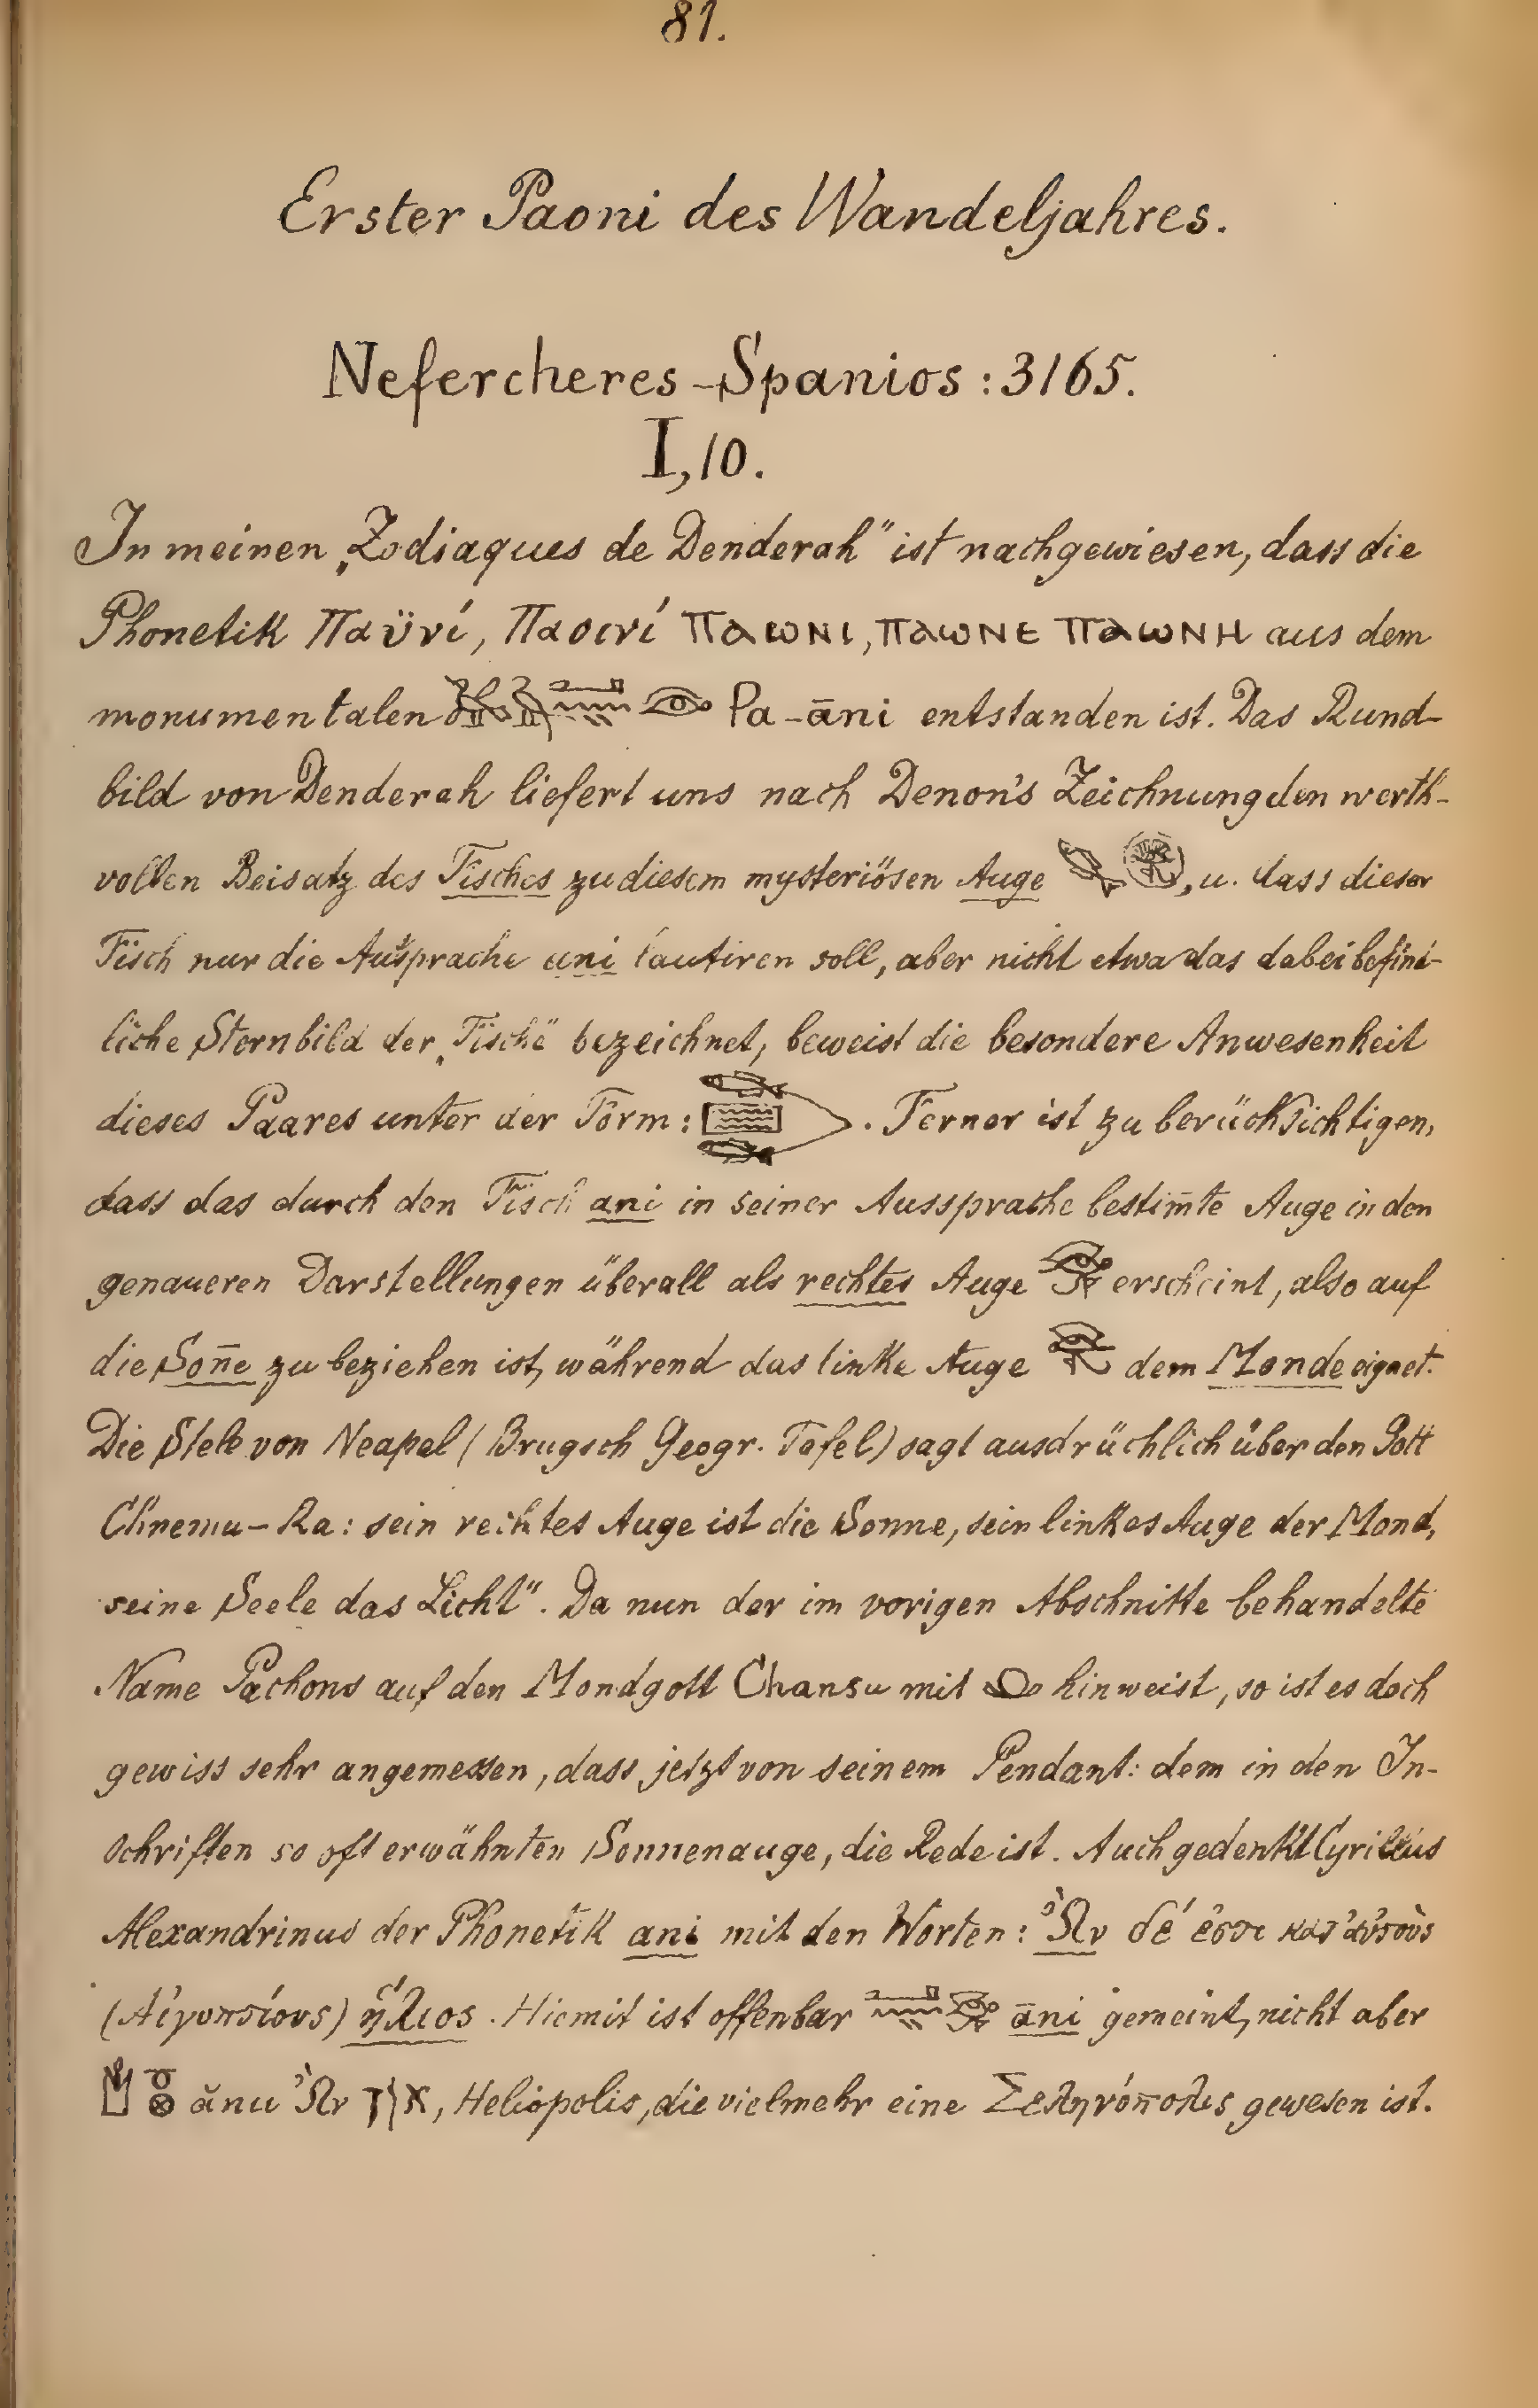 81.
Erster Paoni des Wandeljahres.
Nefercheres-Spanios: 3165.
I, 10.
In meinen „Zodiaques de Denderah" ist nachgewiesen, dass die
Phonetik Παϋνί, Παοινί ⲠⲀⲰⲚⲒ, ⲠⲀⲰⲚⲈ ⲠⲀⲰⲚⲎ aus dem
monumentalen Pa-āni entstanden ist. Das Rund-
bild von Denderah liefert uns nach Denon's Zeichnung den werth-
vollen Beisatz des Fisches zu diesem mysteriösen Auge , u. dass dieser
Fisch nur die Aussprache ani lautiren soll, aber nicht etwa das dabei befind-
liche Sternbild der „Fische" bezeichnet, beweist die besondere Anwesenheit
dieses Paares unter der Form: . Ferner ist zu berücksichtigen,
dass das durch den Fisch ani in seiner Aussprache bestim̄te Auge in den
genaueren Darstellungen überall als rechtes Auge erscheint, also auf
die Son̄e zu beziehen ist, während das linke Auge dem Monde eignet.
Die Stele von Neapel (Brugsch Geogr. Tafel) sagt ausdrücklich über den Gott
Chnemu-Ra: sein rechtes Auge ist die Sonne, sein linkes Auge der Mond,
seine Seele das Licht". Da nun der im vorigen Abschnitte behandelte
Name Pachons auf den Mondgott Chansu mit hinweist, so ist es doch
gewiss sehr angemessen, dass jetzt von seinem Pendant: dem in den In-
schriften so oft erwähnten Sonnenauge, die Rede ist. Auch gedenkt Cyrillus
Alexandrinus der Phonetik ani mit den Worten: Ὢν δέ ἐστι κατ' αὐτοὺς
(Αἰγυπτίους) ἥλιος. Hiemit ist offenbar āni gemeint, nicht aber
ănu Ὢν, Heliopolis, die vielmehr eine Σεληνόπολις gewesen ist.